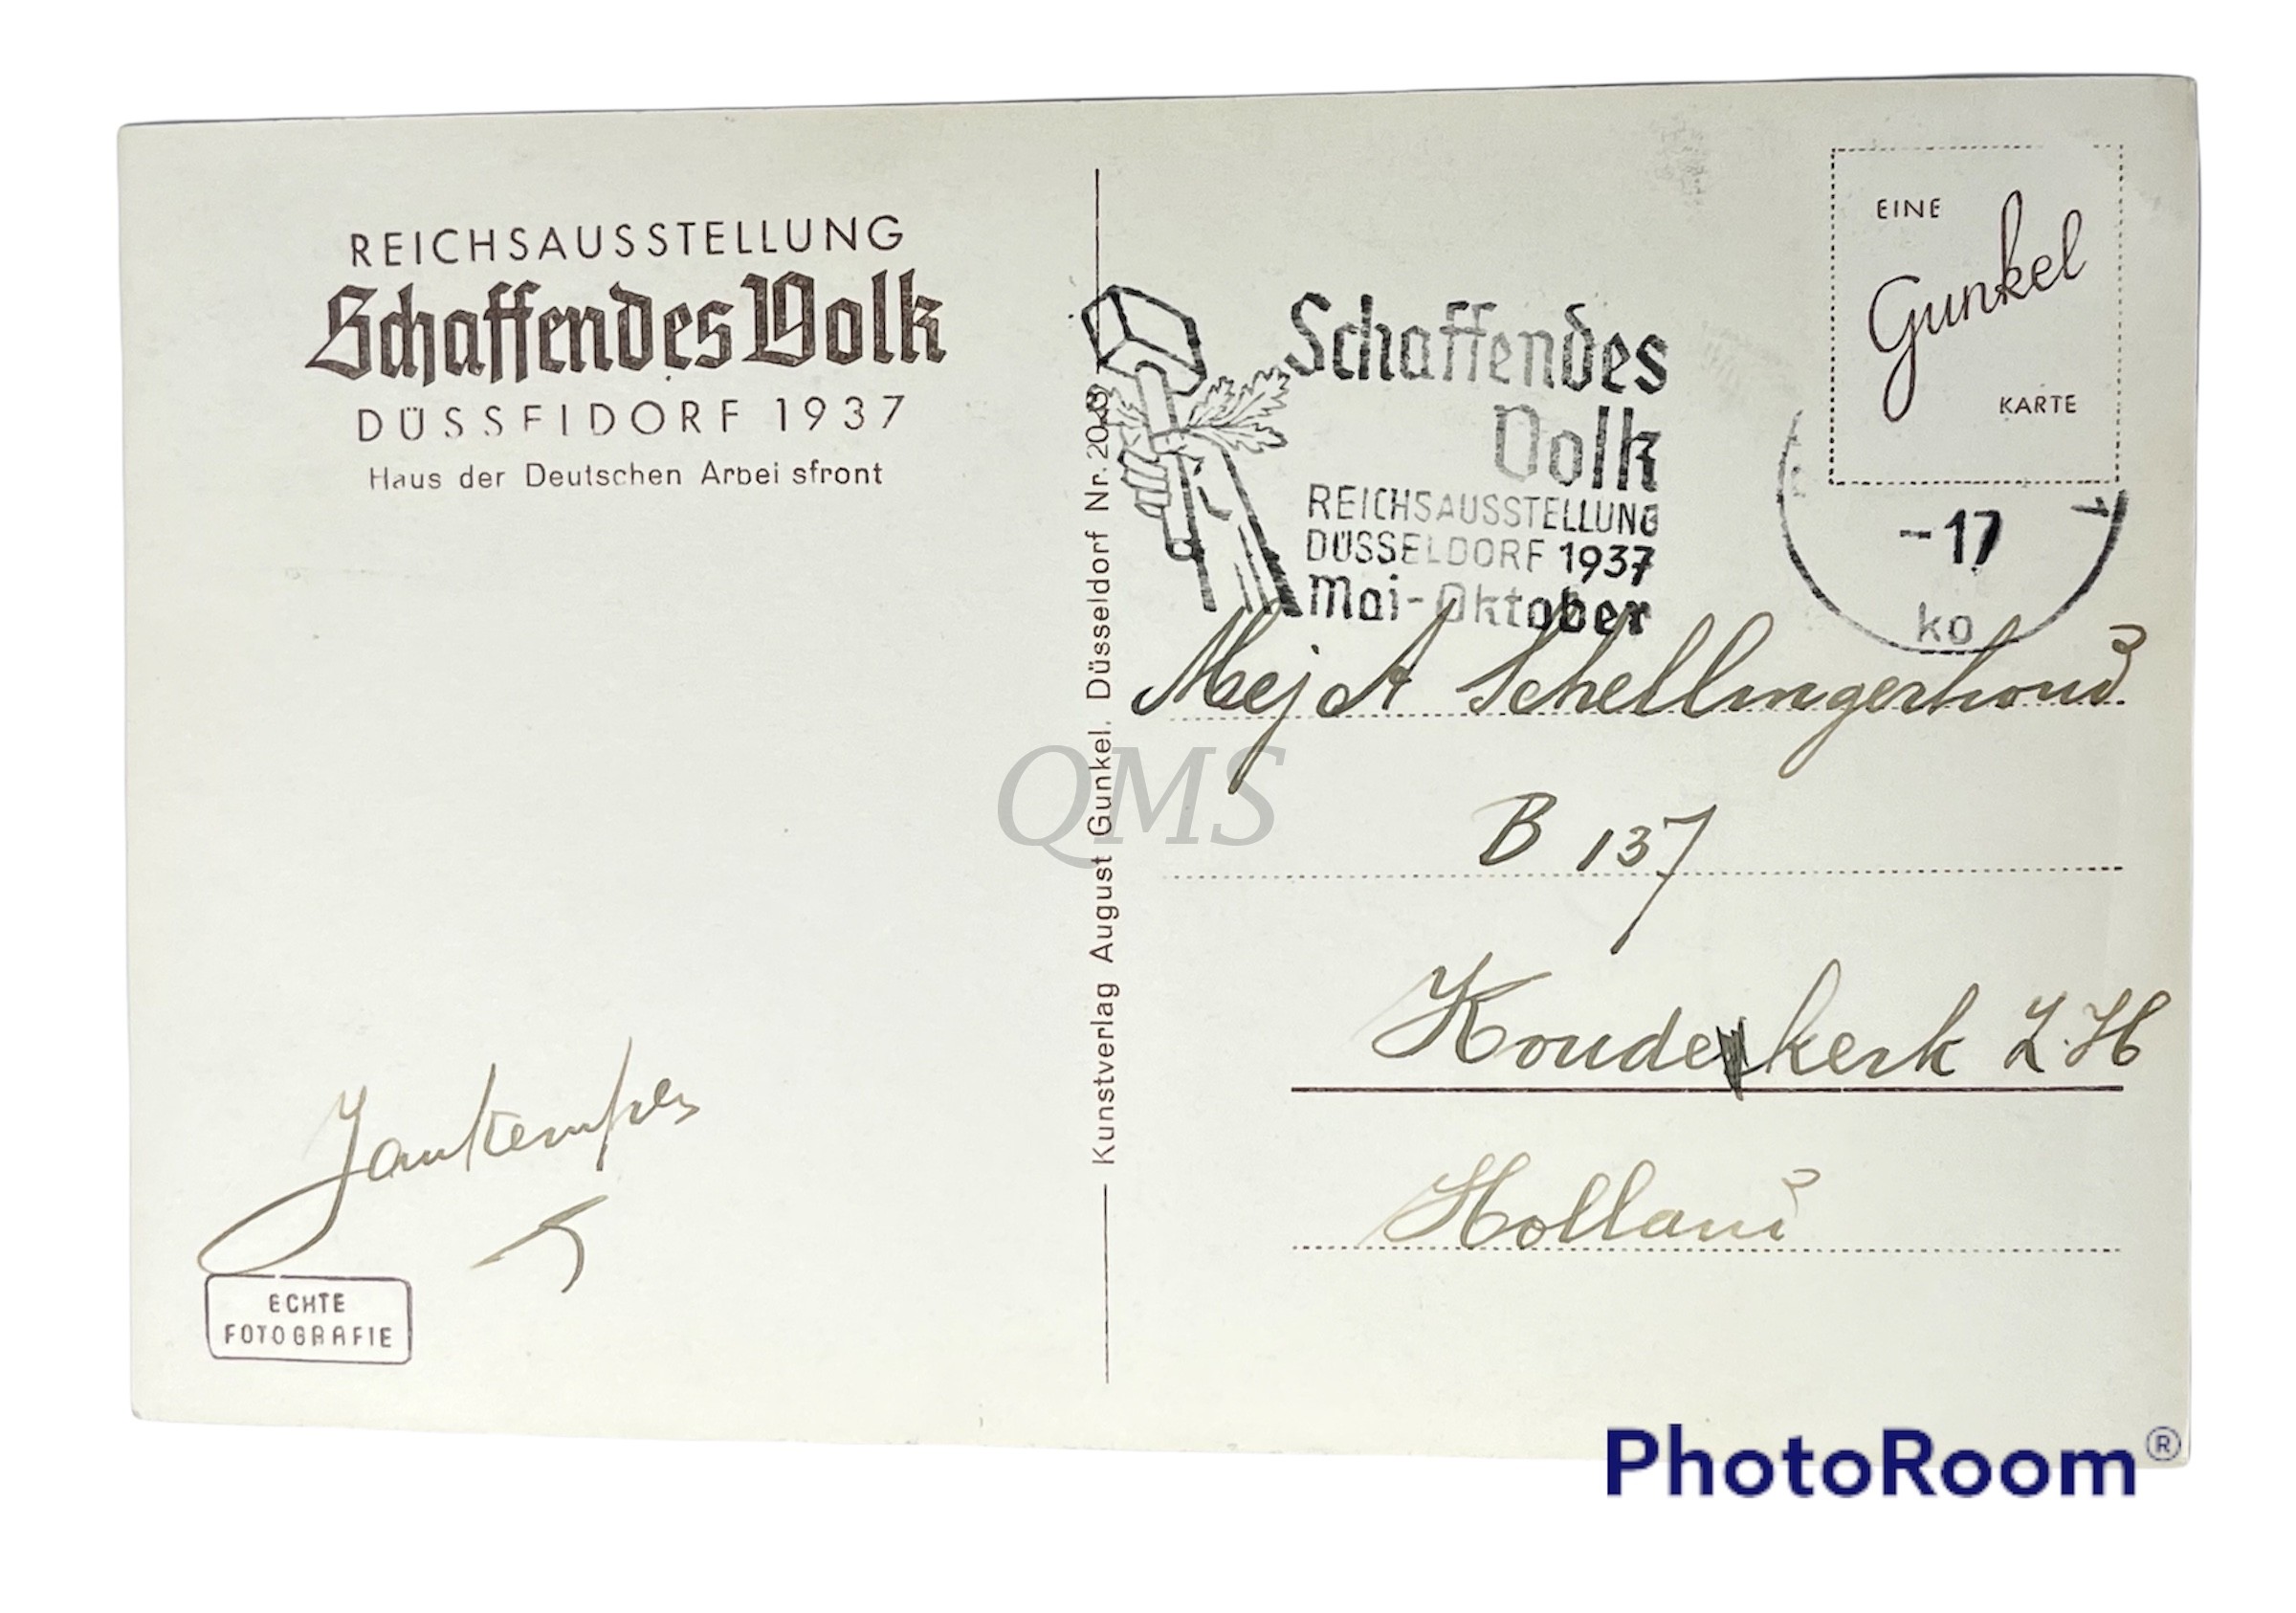 REICHSAUSSTELLUNG
Schaffendes Volk
DÜSSFIDORF 1937
Haus der Deutschen Arbei sfront
ECHTE
FOTOGRAFIE
Kunstverlag August Gunkel, Düsseldorf Nr.
Schaffendes
Volk
REICHSAUSSTELLUNG
DÜSSELDORF 1937
Mai-Oktober
EINE
Gunkel
KARTE
-17
ko
Mej A Schellingerhoud
B 137
Koudekerk Z.H
Holland
QMS
PhotoRoom®